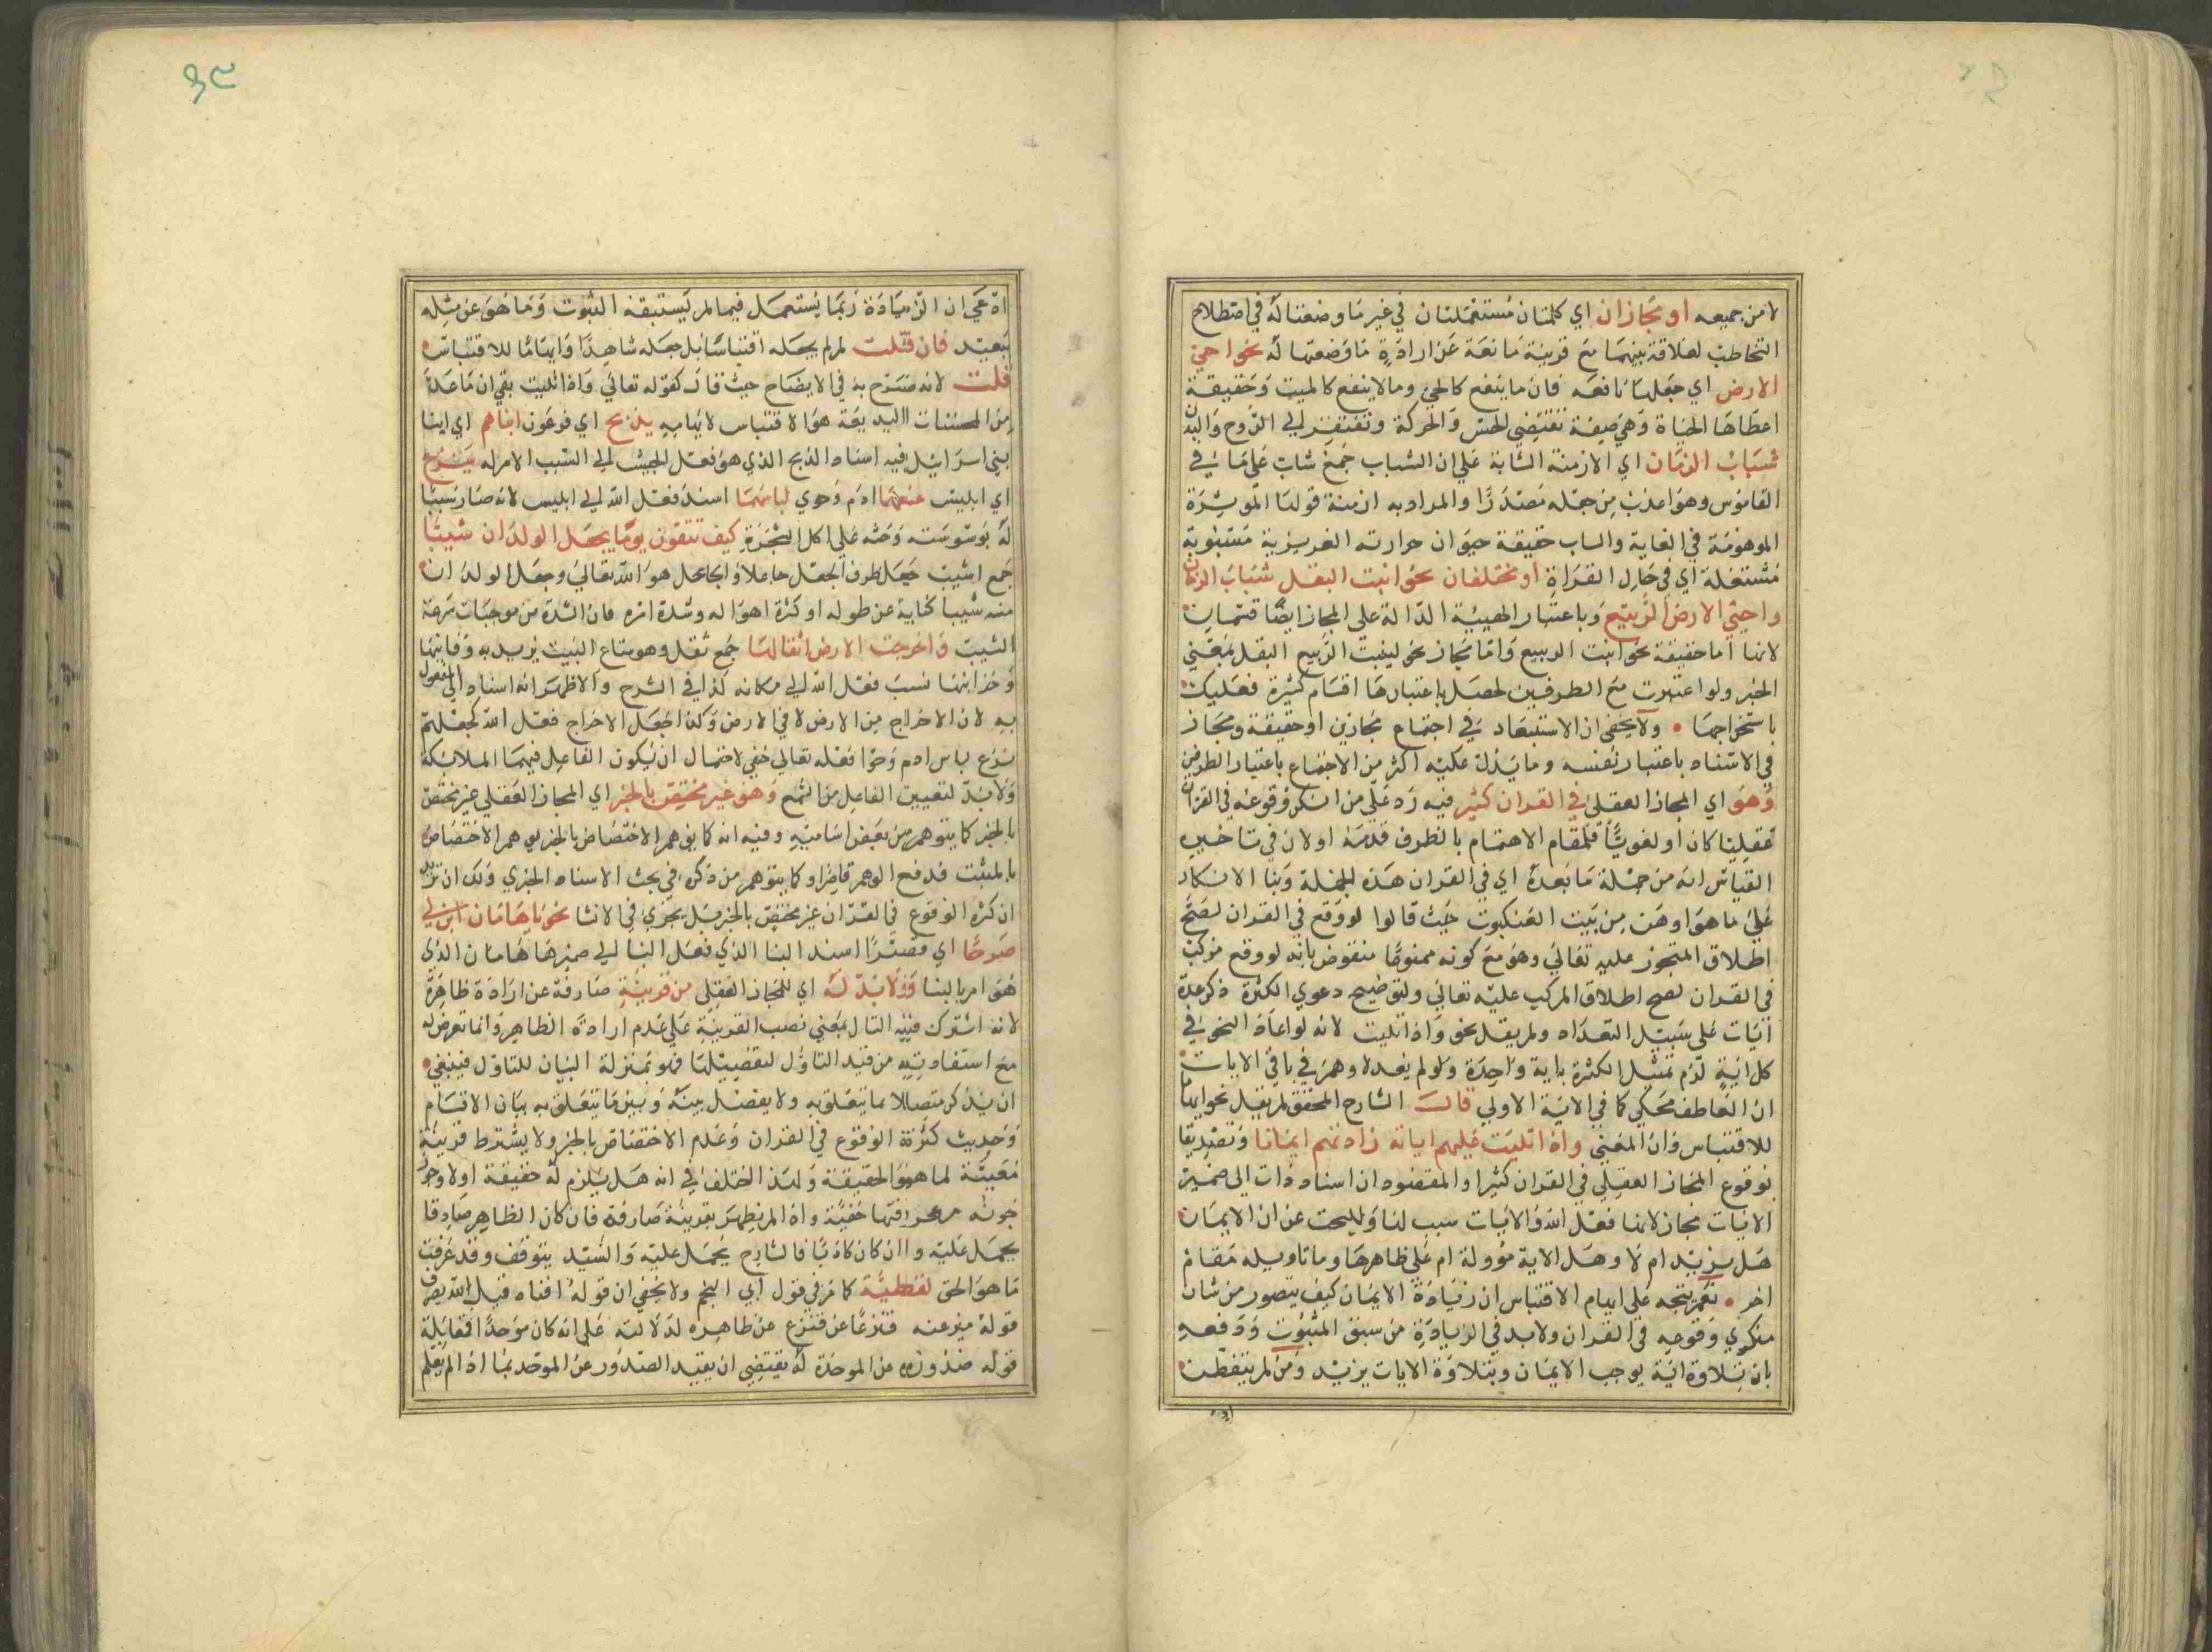 لا من جميعه او مجازان اي كلمتان مستعملتان في غير ما وضعتا له في اصطلاح
التخاطب لعلاقة بينهما مع قرينة مانعة عن ارادة ما وضعتها له نحو احيى
الارض اي جعلها نافعه فان ما ينفع كالحي وما لا ينفع كالميت وحقيقة
اعطاها الحياة وهي صفة تقتضي الحس والحركة وتفتقر الى الروح والبدن
شباب الزمان اي الازمنة الشابة على ان الشباب جمع شاب على ما في
القاموس وهو اعذب من جعله مصدرا والمراد به ازمنة قولها
الموهومة في الغاية والساب حقيقة حيوان حرارته الغريزية مشبوبة
مشتعلة اي في حال القراة او مختلفان نحو انبت البقل شباب الزمان
واحيي الارض الربيع وباعتبار الهيئة الدالة على المجاز ايضا قسمان
لانها اما حقيقة نحو انبت الربيع واما مجاز نحو لينبت الربيع البقل بمعني
الخبر ولو اعتبرت مع الطرفين لحصل باعتبارها اقسام كثيرة فعليك
باستخراجها • ولا يخفى ان الاستبعاد في اجتماع مجازين او حقيقة ومجاز
في الاسناد باعتبار نفسه وما يدل عليه اكثر من الاجتماع باعتبار الطرفين
وهو اي المجاز العقلي في القران كثير فيه رد على من انكر وقوعه في القران
عقليا كان او لغويا فلمقام الاهتمام بالظرف قدمه او لان في تاخيره
القياس انه من جملة ما بعده اي في القران هذه الجملة وبنا الانكار
على ما هو اوهن من بيت العنكبوت حيث قالوا لو وقع في القران لصح
اطلاق المتجوز عليه تعالى وهو مع كونه ممنوعا منقوض بانه لو وقع مركب
في القران لصح اطلاق المركب عليه تعالى ولتوضيح دعوي الكثرة ذكر عدة
آيات على سبيل التعداد ولم يقل نحو واذا تليت لانه لو اعاد النحو في
كل اية لزم تمثيل الكثرة باية واحدة ولو لم يعد لاوهم في باقي الايات
ان العاطف محكي كما في الاية الاولي قال الشارح المحقق لم يقل نحو ايهاما
للاقتباس وان المعني واذا تليت عليهم اياته زادتهم ايمانا وتصديقا
بوقوع المجاز العقلي في القران كثيرا والمقصود ان اسناد زادت الى ضمير
الايات مجاز لانها فعل الله والايات سبب لها وللبحث عن ان الايمان
هل يزيد ام لا وهل الاية مؤولة ام على ظاهرها وما تاويله مقام
اخر • نعم يتجه على ايهام الاقتباس ان زيادة الايمان كيف يتصور من شان
منكري وقوعه في القران ولا بد في الزيادة من سبق الثبوت ودفعه
بان تلاوة اية يوجب الايمان وبتلاوة الايات يزيد ومن لم يتفطن
ادعي ان الزيادة ربما يستعمل فيما لم يستبقه الثبوت وما هو عن مثله
ببعيد فان قلت لم لم يجعله اقتباسا بل جعله شاهدا وايهاما للاقتباس
قلت لانه صرح به في الايضاح حيث قال كقوله تعالي واذا تليت بقي ان ما عده
من المحسنات البديعة هو الاقتباس لا ايهامه يذبح اي فرعون ابناهم اي ابنا
بني اسرائيل فيه اسناد الذبح الذي هو فعل الجيش الى السبب الامر له ينزع
اي ابليس عنهما ادم وحوي لباسهما اسند فعل الله الى ابليس لانه صار سببا
له بوسوسته وحثه على اكل الشجرة كيف تتقون يوما يجعل الولدان شيبا
جمع اشيب جعل ظرف الجعل جاعلا والجاعل هو الله تعالي وجعل الولدان
منه شيبا كناية عن طوله او كثرة اهواله وشدة اثره فان الشدة من موجبات سرعة
الشيب واخرجت الارض اثقالها جمع ثقل وهو متاع البيت يريد به دفاينها
وخزاينها نسب فعل الله الى مكانه كذا في الشرح والاظهر انه اسناد الى المفعول
به لان الاخراج من الارض لا في الارض وكذا جعل الاخراج فعل الله كجعلهم
نزع لباس ادم وحوا فعله تعالي خفي لاحتمال ان يكون الفاعل فيهما الملائكة
ولا بد لتعيين الفاعل من السمع وهو غير مختص بالخبر اي المجاز العقلي غير مختص
بالخبر كما يتوهم من بعض اساميه وفيه انه كما يوهم الاختصاص بالخبر يوهم الاختصاص
بالمثبت فدفع الوهم قاصر او كما يتوهم من ذكره في بحث الاسناد الخبري ولك ان تقول
ان كثرة الوقوع في القران غير مختص بالخبر بل يجري في الانشا نحو يا هامان ابن لي
صرحا اي قصرا اسند البنا الذي فعل البنا الى ضمير هامان الذي
هو امر بالبنا ولا بد له اي للمجاز العقلي من قرينة صارفة عن ارادة ظاهره
لانه اشترك فيه التال بمعني نصب القرينة على عدم ارادة الظاهر وانما تعرض له
مع استفادته من قيد التاول لتفصيلها فهو بمنزلة البيان للتاول فينبغي
ان يذكر متصلا بما يتعلق به ولا يفصل بينه وبين ما يتعلق به بيان الاقسام
وحديث كثرة الوقوع في القران وعدم الاختصاص بالخبر ولا يشترط قرينة
معينة لما هو الحقيقة ولهذا اختلف في انه هل يلزم له حقيقة او لا
خفية واذا لم يظهر بقرينة صارفة فان كان الظاهر صادقا
يحمل عليه وان كان كاذبا فالشارح يحمل عليه والسيد يتوقف وقد عرفت
ما هو الحق لفظية كما مر في قول ابي النجم ولا يخفي ان قوله افناه قيل الله يصرف
قوله ميز عنه قنزعا عن قنزع عن ظاهره لدلالته على انه كان موحدا فمقابلة
قوله صدوره عن الموحدة له يقتضي ان يقيد الصدور عن الموحد بما اذا لم يعلم